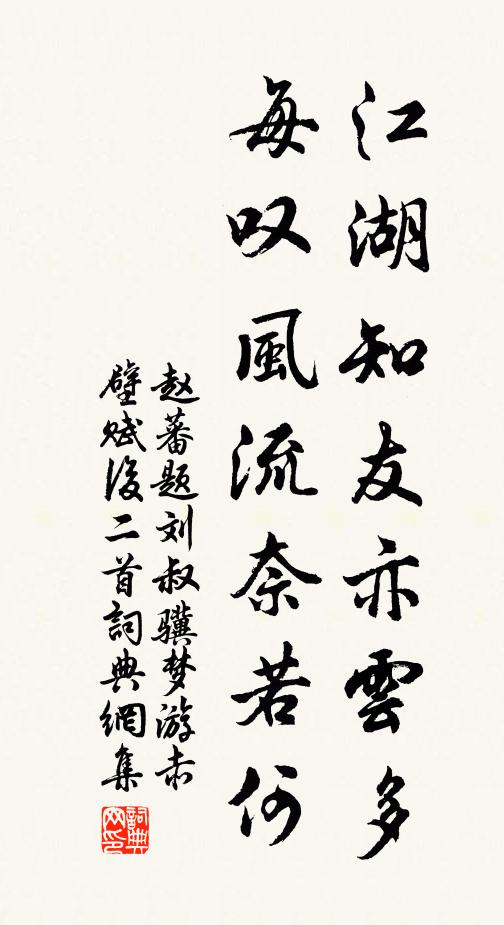 江湖知友亦雲多
每叹風流奈若何
赵蕃题刘叔骥梦游赤
壁赋後二首詞典網集
詞典
网印